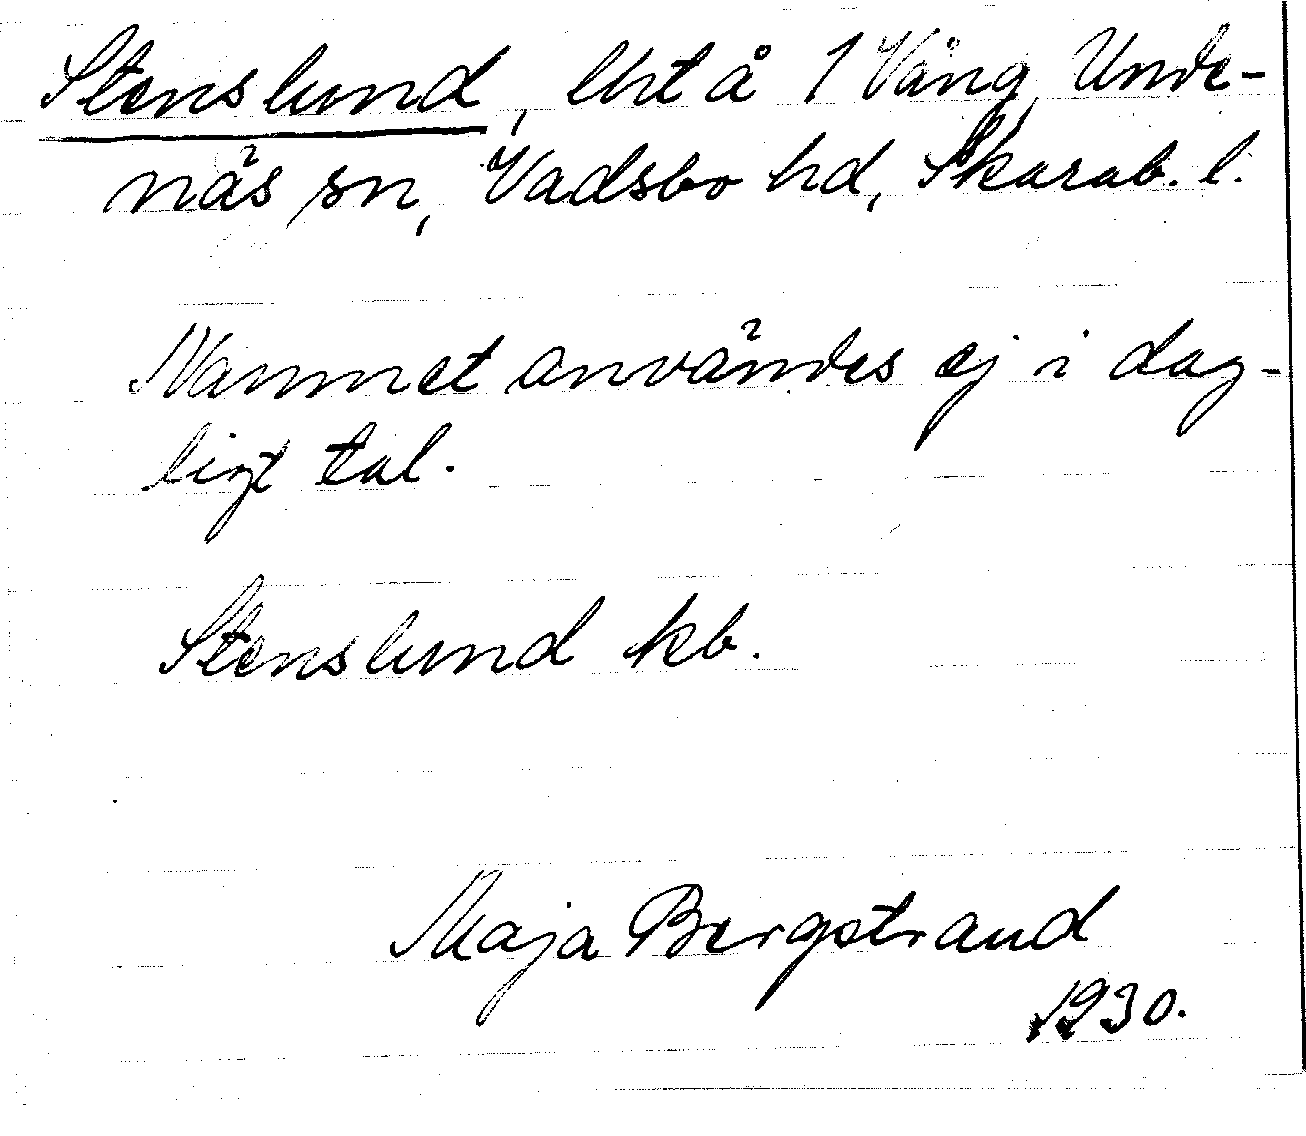 Stenslund, lht å 1 Vång, Unde-
näs sn, Vadsbo hd, Skarab. l.
Namnet användes ej i dag-
ligt tal.
Stenslund kb.
Maja Bergstrand
1930.